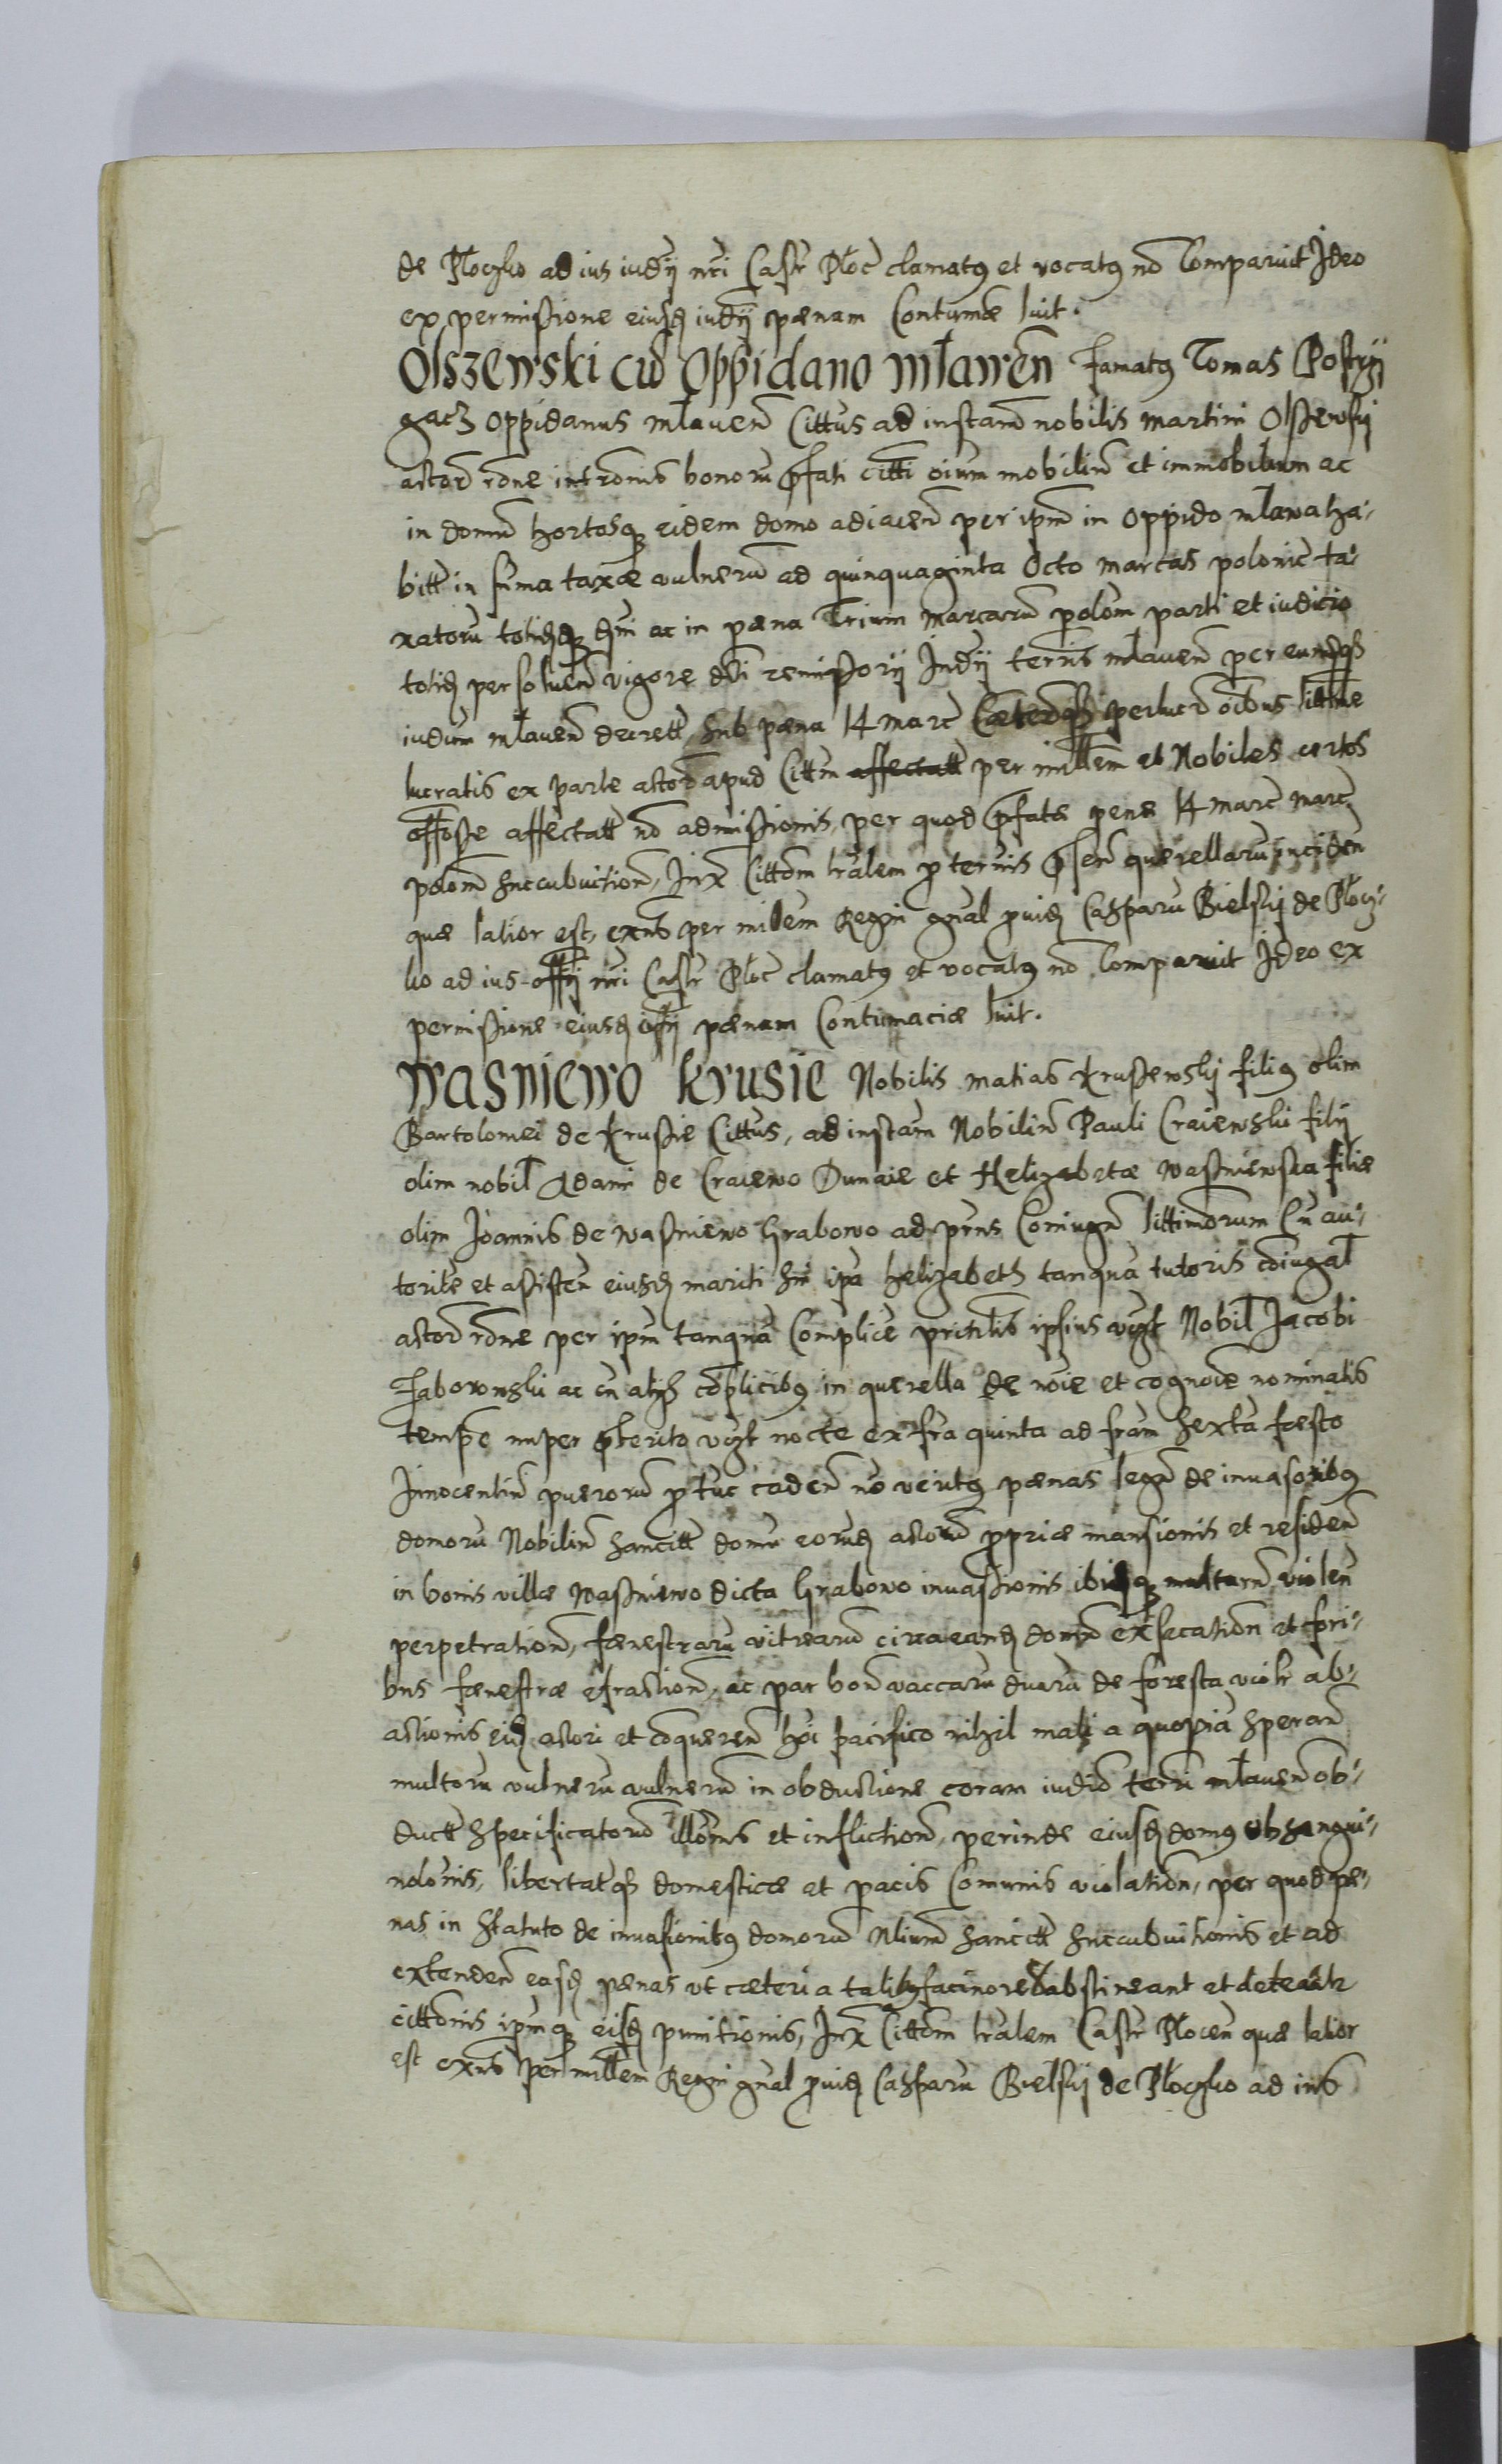 de Płoczko ad ius iudÿ nri Castr Płoc clamatꝰ et vocatꝰ nō Comparuit Jdeo
ex permissione eiusd iudÿ pænam Contumæ luit.
Olszewski cū Oppidano Mławēn Famatꝰ Tomas Postrzÿ
gacz Oppidanus Mlauen̄ Cittus ad instam̄ nobilis Martini Olszewskÿ
actor rōne intronis bonorū p̄fati citti oium mobiliū et immobilium ac
in domū hortosqꝫ eidem domo adiacen̄ per ipm̄ in Oppido Mlawa ha-
bitt in suma taxæ vulnerū ad quinquaginta Octo marcas polonic̄ ta-
xatorū totidqꝫ dni ac in pæna Trium Marcarū polon̄ parti et iudicio
totid persoluen̄ vigore dti remissorÿ Judÿ terris mlauen̄ per eumqꝫ
iudium mlauen̄ decrett, sub pæna 14 marc̄ Cæterosqꝫ perlucr̄ oībus littime
lucratis ex parte actor̄ apud Cittm̄ affectatt per mittem̄ et Nobiles certos
offosse affectatt nō admissionis, per quod p̄fatæ penæ 14 marc̄ marc̄
polon̄ succubuition̄, Juxꝫ Cittom̄ lralem p teruis p̄sen̄ querellarū inciden̄
quæ latior est, exns per milem Regni gnal prouid Casparū Bielskÿ de Płocz-
ko ad ius offÿ nri Castr Płoc̄ clamatꝰ et vocatꝰ nō Comparuit Jdeo ex
permissione eiusd offÿ pænam Contumaciæ luit.
Wasniewo Krusie Nobilis Matias Krussewskÿ filiꝰ olim
Bartolomei de Krussie Cittus, ad instam̄ Nobiliū Pauli Craiewski filÿ
olim nobil Adami de Craiewo Dunaie et Helizabetæ Wasniewska filiæ
olim Joannis de Wasniewo Grabowo ad p̄rns Coniugū littimorum Cū au-
toritte et assisten̄ eiusd mariti sui ipa Helizabeth tanquā tutoris cōiugal
actor rōne per ipm̄ tanquā Complicē prinlis ipsius vigt Nobil Jacobi
Zaborowski ac cū alÿs cōplicibꝰ in querella de noie et cognoie nominatis
tempe nuper p̄terito vigt nocte ex fra quinta ad fram̄ sexta festo
Jnnocentiū puerorū p tuc caden̄ nō veritꝰ pænas legū de inuasoribꝰ
domorū Nobiliū sancitt domū eorūd actorū propriæ mansionis et residen̄
in bonis villæ Wasniewo dicta Grabowo inuasionis ibidqꝫ multarū violen̄
perpetration̄, fænestrarū vitrearū circa eand domū exsecation̄ et fori-
bus fænestræ efraction̄, ac par boū vaccarū duarū de foresta violr ab-
actionis eid actori et cōqueren̄ hōi pacifico nihil mali a quopiā speran̄
multorū vulnerū vulnerū in obductione coram iudiō terri mlauen̄ ob-
ductt specificatorū illōnis et infliction̄, perinde eiusd domꝰ obsangui-
nolōnis, libertatqꝫ domesticæ et pacis Comunis violation̄, per quod pæ-
nas in statuto de inuasionibꝰ domorū Nlium sancitt succubuitionis et ad
extenden̄ easd pænas vt cæteri a talibꝰ facinorebꝰ abstineant et deteantr
cittonis ipmqꝫ eisd punitionis, Juxꝫ Cittom̄ lralem Castr Płocen̄ quæ latior
est exns per mittem Regni gnal prouid Casparū Bielskÿ de Płoczko ad ius